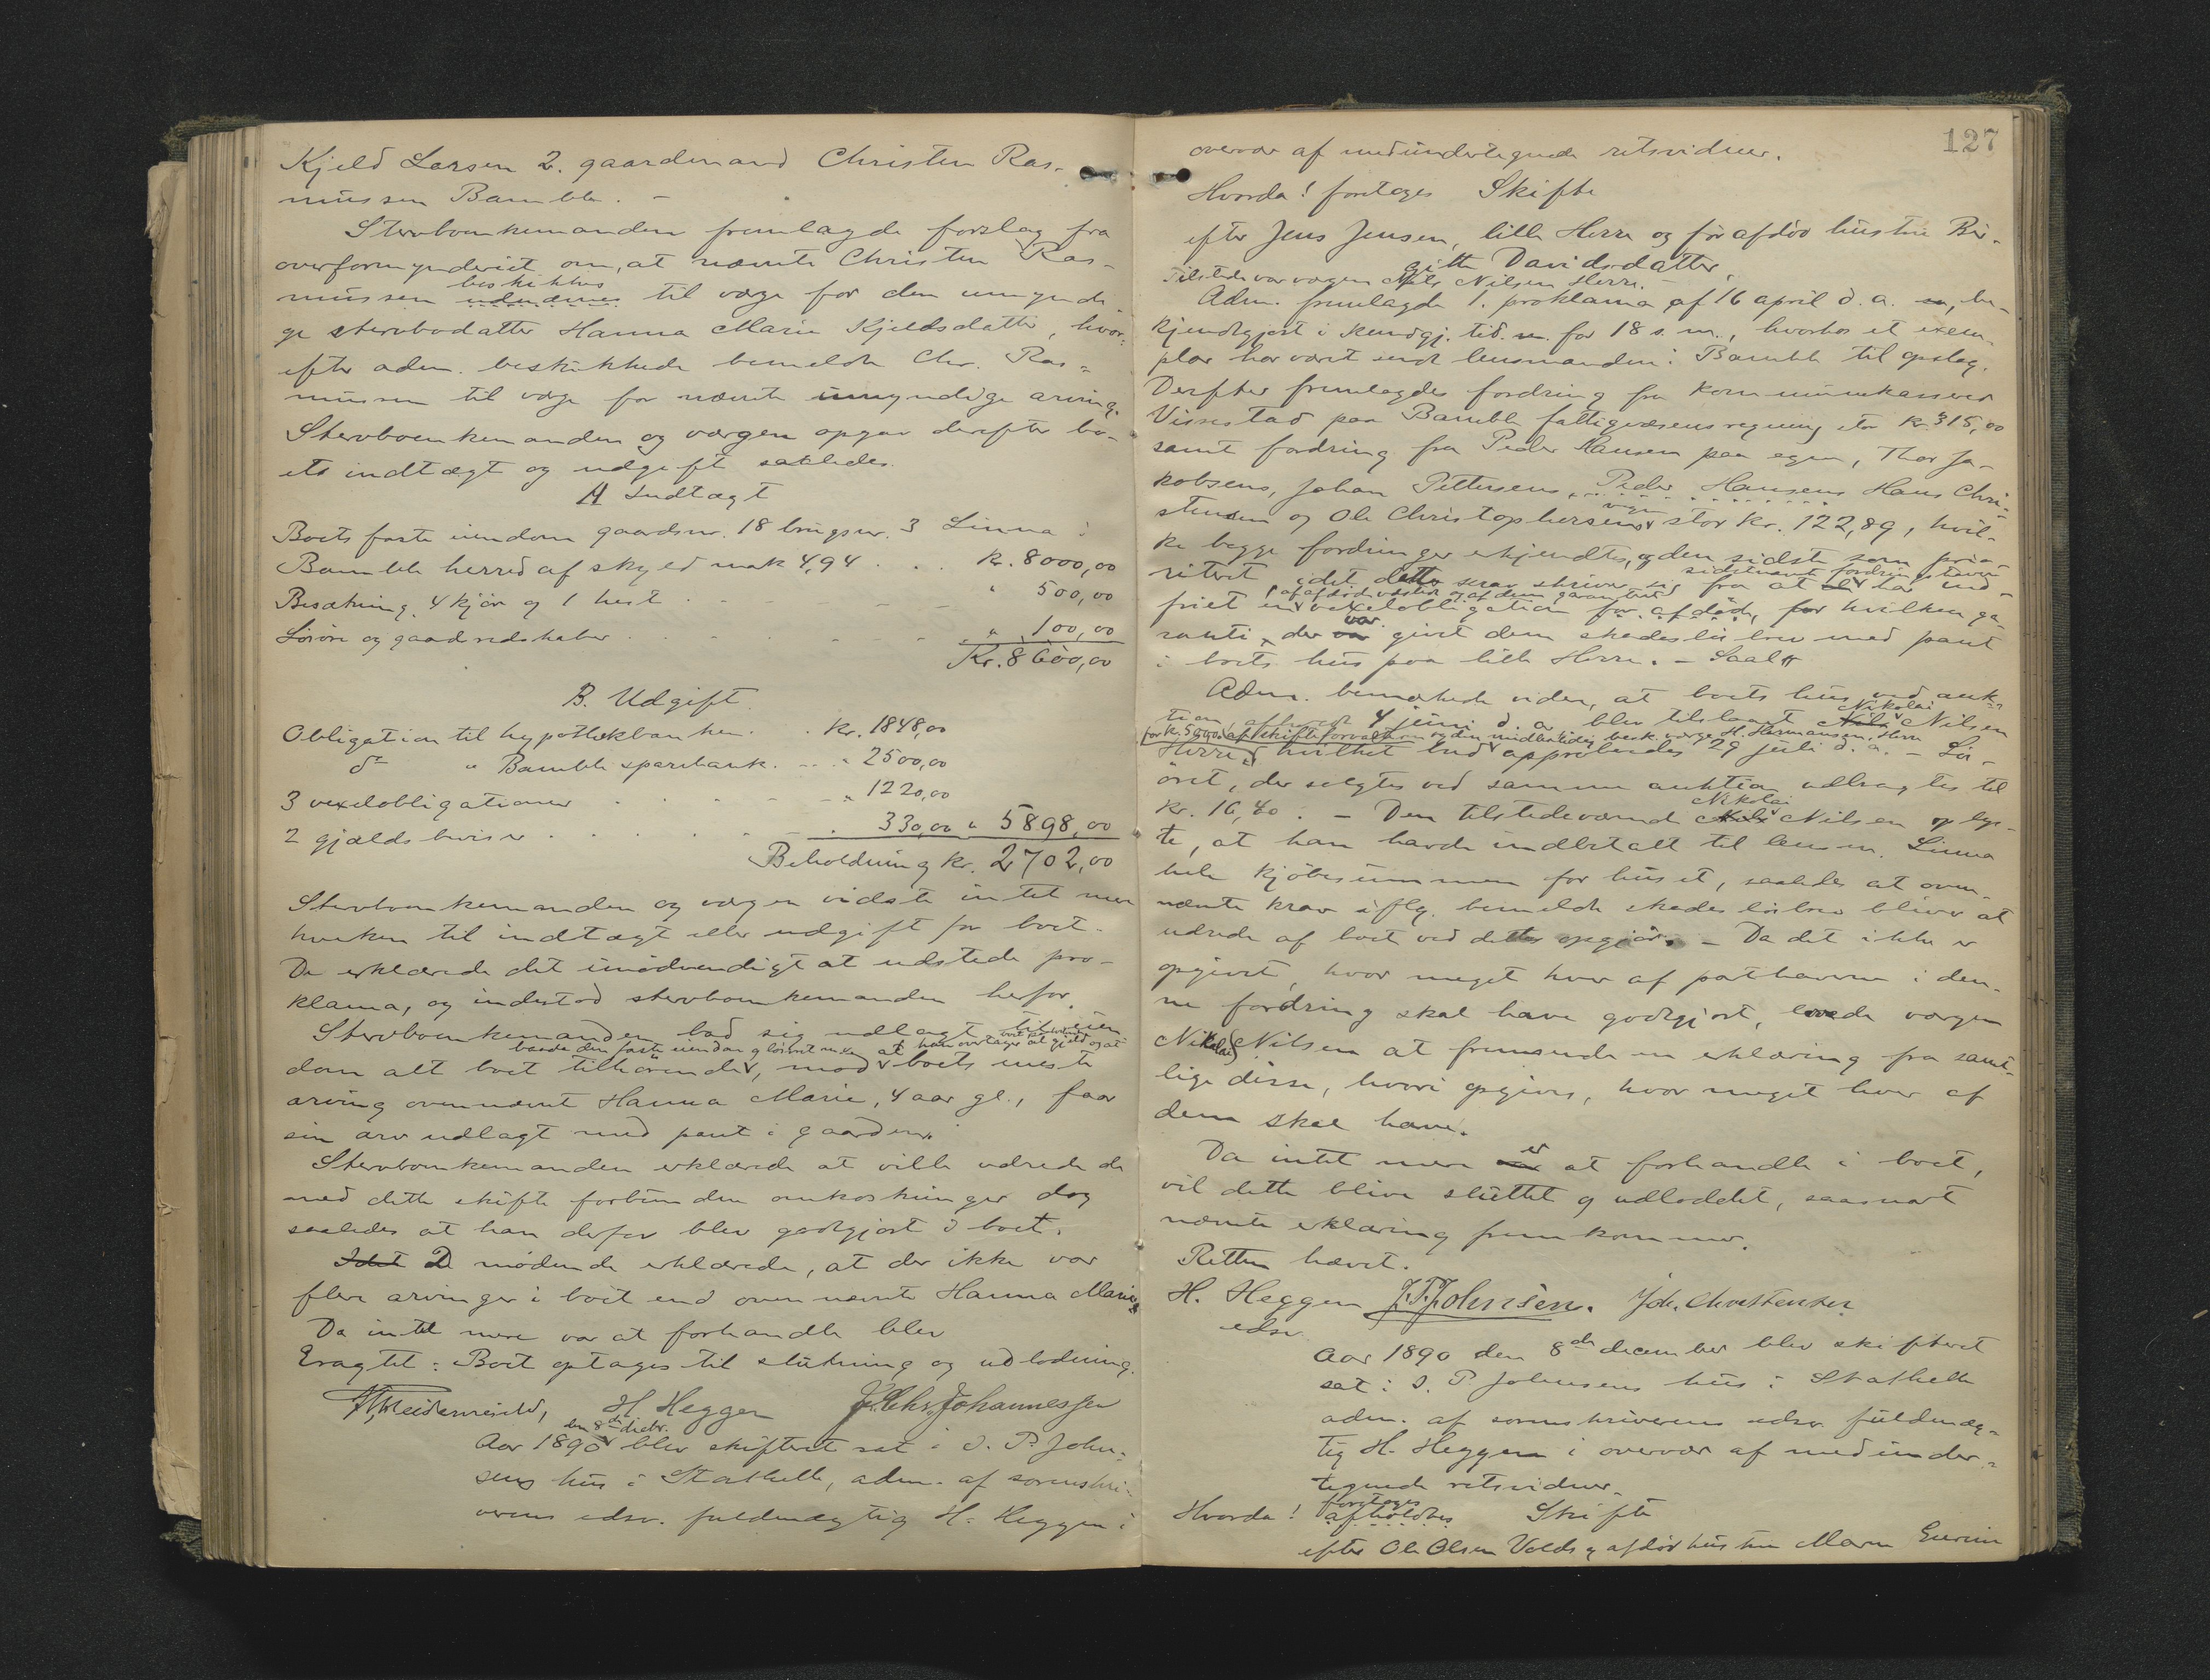 Kjeld Larsen 2. gaardmand Christen Ras-
mussen Bamble. -
Stervboenkemanden fremlagde forslag fra
overformynderiet om, at nævnte Christen Ras-
beskikkes
mussen udnævnes til værge for den umyndi
ge stervbodatter Hanna Marie Kjeldsdatter, hvor-
efter adm. beskikkede bemeldte Chr. Ras-
mussen til værge for nævnte umyndige arving.
Stervboenkemanden og værgen opgav derefter bo-
ets indtægt og udgift saaledes.
A Indtægt
Boets faste eiendom gaardsnr. 18 brugsnr. 3 Linna i
Bamble herred af skyld mark 4,94 . . . Kr. 8000,00
Besætning, 4 kjør og 1 hest . - - - " 500,00
Løsøre og gaardredskaber . - - - " 100,00
Kr. 8600,00
B. Udgift.
Obligation til hypothekbanken . . Kr. 1848,00
do " Bamble sparebank. . . . " 2500,00
3 vexelobligationer . . . . " 1220,00
2 gjældsbeviser . . . . . 330,00 " 5898,00
Beholdning kr. 2702,00
Stervboenkemanden og værgen vidste intet mer
hverken til indtægt eller udgift for boet.
De erklærede det unødvendigt at udstede pro-
klama, og indestod stervboenkemanden herfor.
Stervboenkemanden bad sig udlagt til eien
baade den faste eiendom og løsøret mod at han overtager al gjæld og at
dom alt boet tilhørende, mod boets eneste
arving ovennævnte Hanna Marie, 4 aar gl., faar
sin arv udlagt med pant i gaarden.
Stervboenkemanden erklærede at ville udrede de
med dette skifte forbundne omkostninger dog
saaledes at han derfor blev godtgjort i boet.
Idet De mødende erklærede, at der ikke var
flere arvinger i boet end ovennævnte Hanna Marie.
Da intet mere var at forhandle blev
Eragtet: Boet optages til slutning og udlodning.
H Heggen J. Chr. Johannessen
den 8de decbr.
Aar 1890 blev skifteret sat i J. P. John-
sens hus i Stathelle, adm. af sorenskri-
verens edsv. fuldmægtig H. Heggen i
127
overvær af medundertegnede retsvidner.
Hvorda! foretages Skifte
efter Jens Jensen, lille Herre og førafdøde hustru Bir-
gitte Davidsdatter.
Tilstede var værgen Nils Nilsen Herre. -
Adm. fremlagde 1. proklama af 16 april d. a. be-
kjendtgjort i Kundgj. tid. for 18 s. m., hvorhos et exem-
plar har været sendt lensmanden i Bamble til opslag.
Derefter fremlagdes fordring fra kommunekasserer
Vissestad paa Bamble fattigvæsens regning stor kr. 315,00
samt fordring fra Peder Hansen paa egen, Thor Ja-
kobsens, Johan Pettersens, Peder Hansens Hans Chri-
stensen og Ole Christophersens vegne stor kr. 122,89, hvil-
ke begge fordringer erkjendtes, og den sidste som prio-
sidstnævnte fordringshavere
riteret, idet dette krav skriver sig fra at de har ind-
af afdøde udstedt og af dem garanteret
friet en vexelobligation for afdøde, for hvilken ga-
var
ranti der var givet dem skadesløsbrev med pant
i boets hus paa lille Herre. -
Adm. bemærkede videre, at boets hus ved auk-
Nikolai
tion, afholdt 4 juni d. a. blev tilslaaet Nils Nilsen
for kr. 500,00 af skifteforvalteren og den midlertidig besk. værge H. Hermansen, Herre
Herre, hvilket bud approberedes 29 juli d. a. - Løs-
øret, der solgtes ved samme auktion udbragtes til
Nikolai
Kr. 16,40. - Den tilstedeværende Nils Nilsen oplys-
te, at han havde indbetalt til lensm. Linna
hele kjøbesummen for huset, saaledes at oven-
nævnte krav iflg. bemeldte skadesløsbrev bliver at
udrede af boet ved dettes opgjør. - Da det ikke er
opgivet, hvor meget hver af panthaverne i den-
ne fordring skal have godtgjort, lovede værgen
Nikolai Nilsen at fremsende en erklæring fra samt-
lige disse, hvori opgives, hvor meget hver af
dem skal have.
er
Da intet mere var at forhandle i boet,
vil dette blive sluttet og udloddet, saasnart
nævnte erklæring fremkommer.
Retten hævet.
H. Heggen J. P. Johnsen. Joh. Christensen
edsv.
Aar 1890 den 8de december blev skifteret
sat i J. P. Johnsens hus i Stathelle
adm. af sorenskriverens edsv. fuldmæg-
tig H. Heggen i overvær af medunder-
tegnede retsvidner.
foretages
Hvorda! afholdtes Skifte
efter Ole Olsen Valds og afdøde hustru Maren